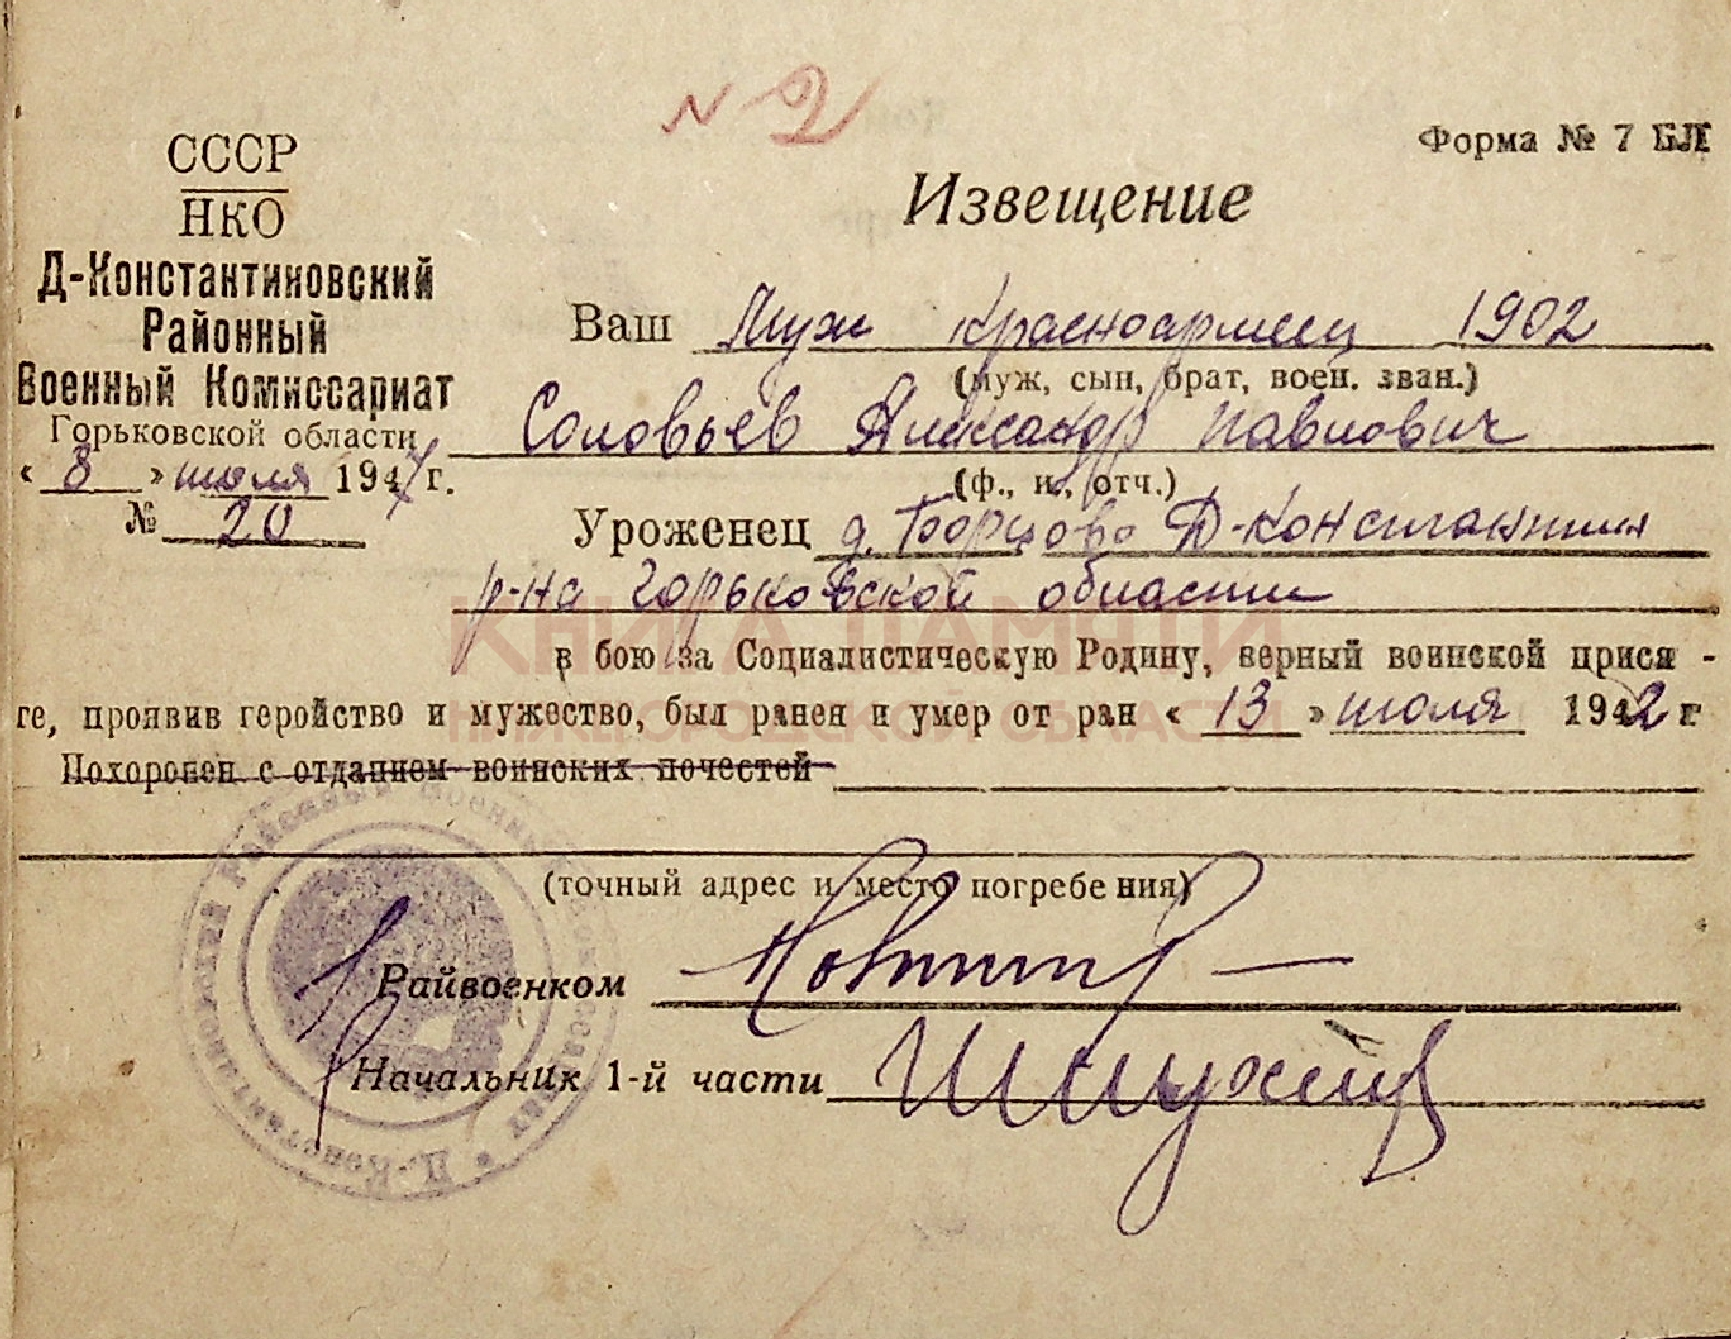 № 2
Форма № 7 БЛ
СССР
НКО
Д-Константиновский
Районный
Военный Комиссариат
Горьковской области
« 8 » июля 1947 г.
№ 20
Извещение
Ваш Муж красноармеец 1902
(муж, сын, брат, воен. зван.)
Соловьев Александр Павлович
(ф., и., отч.)
Уроженец д. Борцово Д-Константин
р-на Горьковской области
в бою за Социалистическую Родину, верный воинской прися-
ге, проявив геройство и мужество, был ранен и умер от ран « 13 » июля 1942 г
Похоронен с отданием воинских почестей
(точный адрес и место погребения)
Райвоенком
Начальник 1-й части
КНИГА ПАМЯТИ
НИЖЕГОРОДСКОЙ ОБЛАСТИ